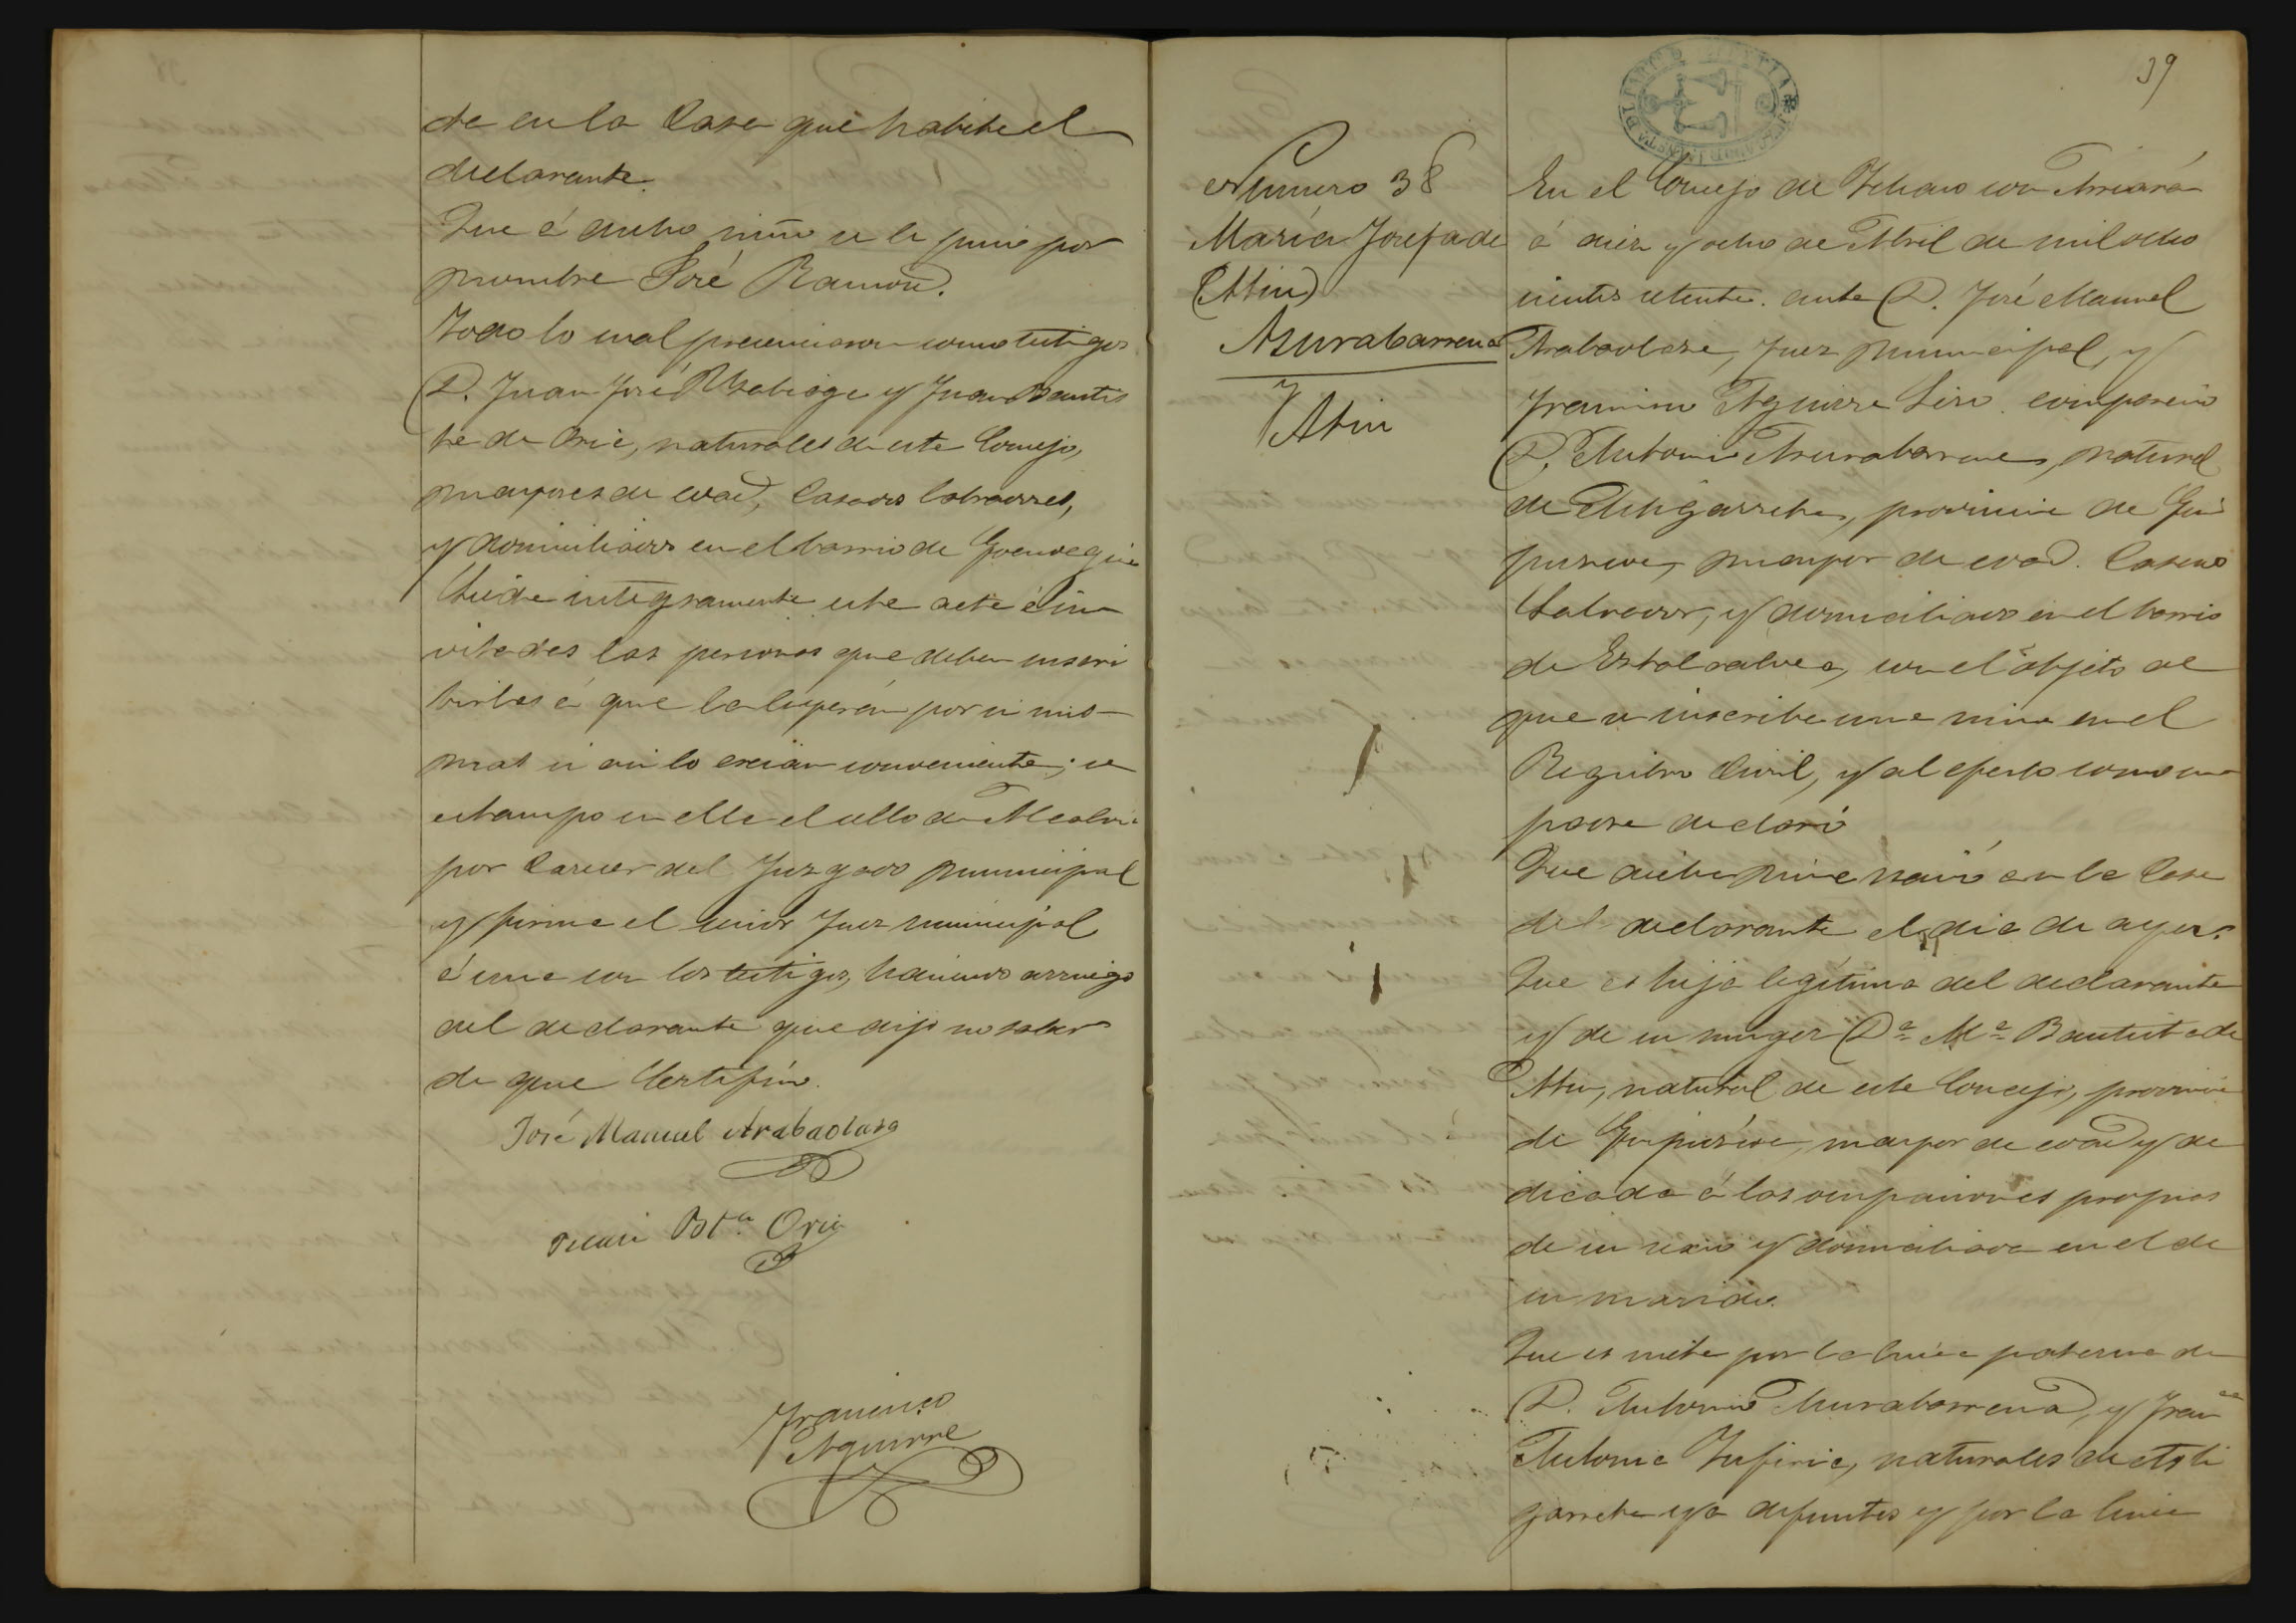 de en la Casa que habita el
declarante.
Que á dicho niño se le puso por
nombre José Ramon.
Todo lo cual presenciaron como testigos
D. Juan José Usabiaga y Juan Bautis
ta de Oria, naturales de este Concejo,
mayores de edad, Casados labradores,
y domiciliados en el barrio de
Leida integramente esta acta é in
vitadas las personas que deben suscri
birlas á que la leyeran por si mis-
mas si asi lo creian conveniente; se
estampo en ella el sello de Alcaldia
por Carecer del Juzgado municipal
y firma el señor Juez municipal
á una con los testigos, haciendo arruego
del declarante que dijo no saber
de que Certifico.
José Manuel Arabaolaza
Juan Bta. Oria
Francisco
Aguirre
39
Numero 38
María Josefa de
(Atin)
Azurabarrena
Atin
En el Concejo de Ichaso con Arriarán
á diez y ocho de Abril de mil ocho
cientos setenta. ante D. José Manuel
Arabaolaza, Juez municipal, y
Francisco Aguirre Srio. comparecio
D. Antonio Azurabarrena, natural
de Astigarreta, provincia de Gui
puzcoa, mayor de edad. Casado
Labrador, y domiciliado en el barrio
de con el objeto de
que se inscriba una niña en el
Registro Civil, y al efecto como su
padre declaró
Que dicha niña nació en la Casa
del declarante el dia de ayer.
Que es hija legítima del declarante
y de su muger Da. Ma. Bautista de
Atin, natural de este Concejo, provincia
de Guipúzcoa, mayor de edad y de
dicada á las ocupaciones propias
de su sexo y domiciliada en el de
su marido.
Que es nieta por la linea paterna de
D. Antonio Azurabarrena, y Franca
Antonia naturales de Asti
garreta ya difuntos y por la linea